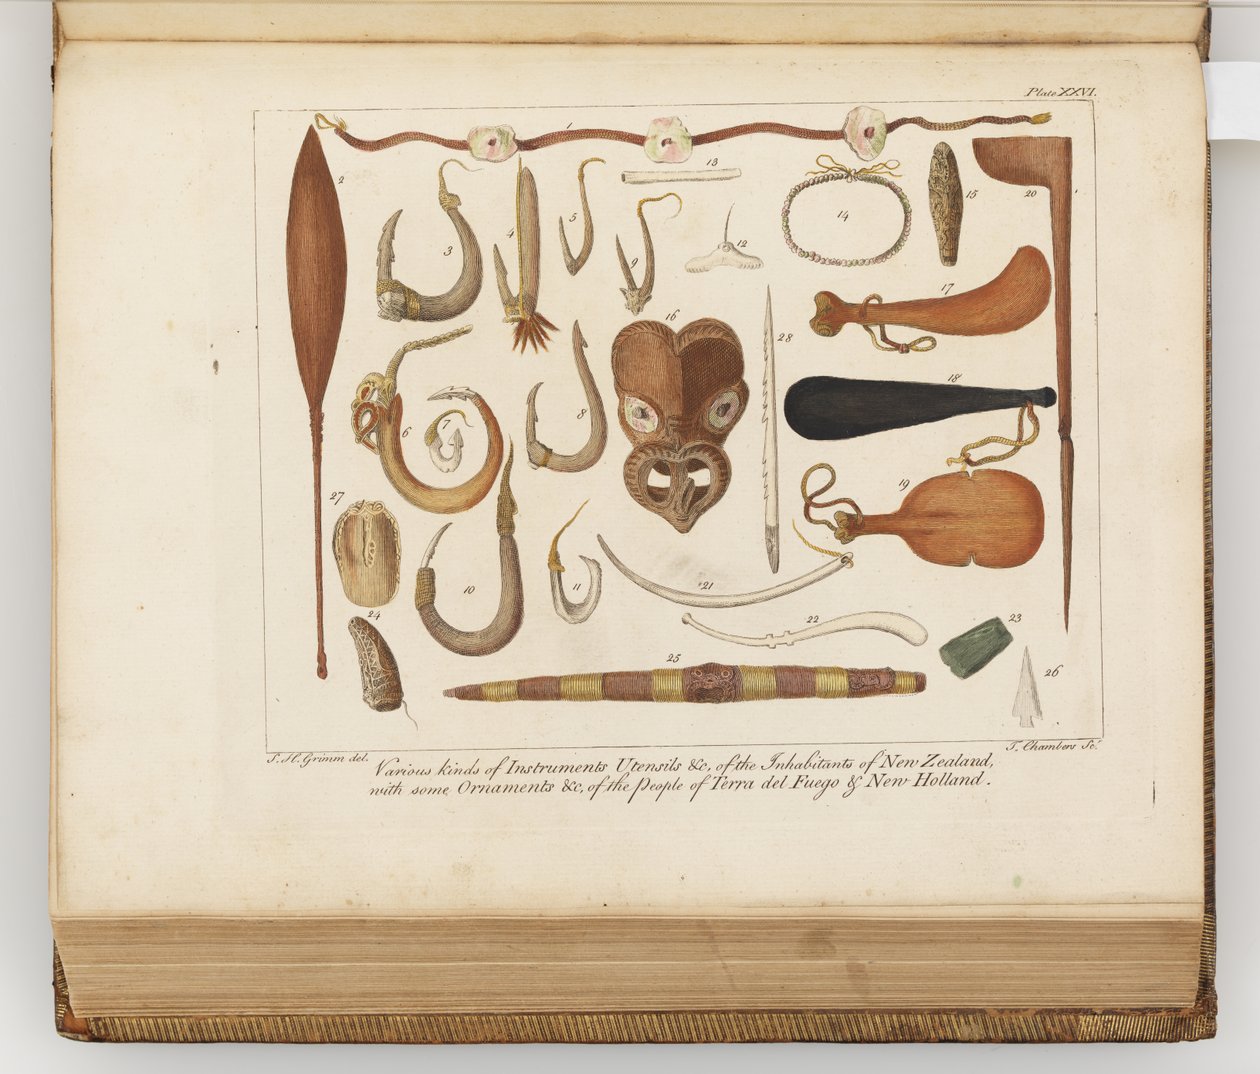 Plate XXVI.
1
2
3
4
5
13
14
15
20
9
12
17
16
28
18
6
7
8
19
27
10
11
21
22
23
24
25
26
S. H. Grimm del.
T. Chambers Sc.
Various kinds of Instruments Utensils &c, of the Inhabitants of New Zealand,
with some Ornaments &c, of the People of Terra del Fuego & New Holland.